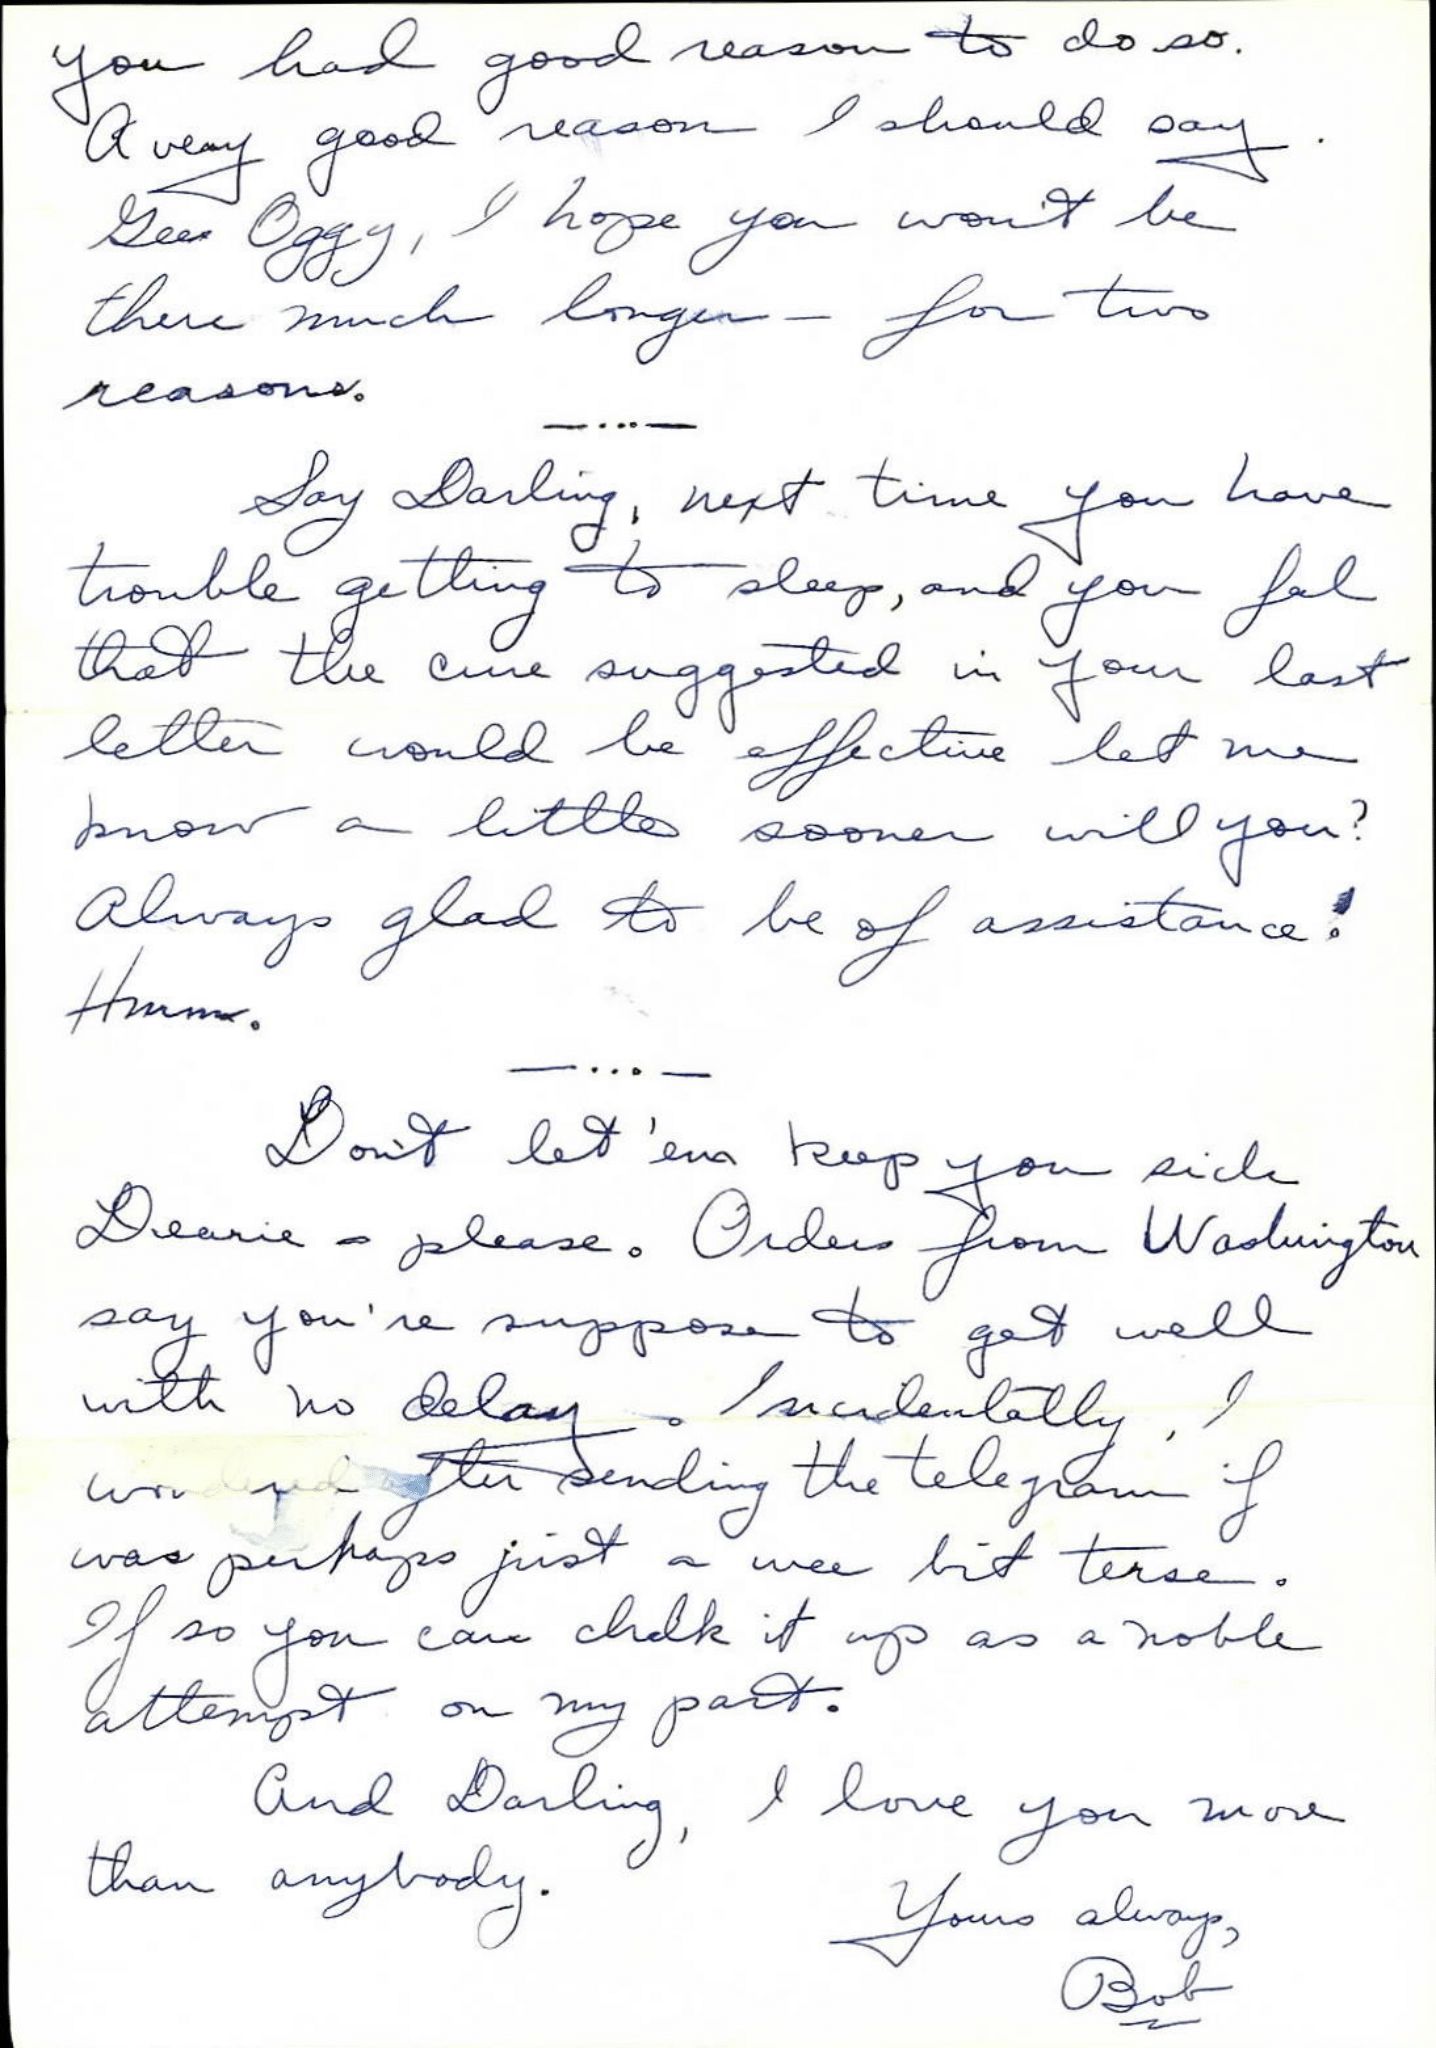 you had good reason to do so.
A very good reason I should say.
Gee Oggy, I hope you won't be
there much longer – for two
reasons.
—...—
Say Darling, next time you have
trouble getting to sleep, and you feel
that the cure suggested in your last
letter would be effective let me
know a little sooner will you?
Always glad to be of assistance!
Hmmm.
—...—
Don't let 'em keep you sick
Dearie – please. Orders from Washington
say you're suppose to get well
with no delay. Incidentally, I
wondered after sending the telegram if
was perhaps just a wee bit terse.
If so you can chalk it up as a noble
attempt on my part.
And Darling, I love you more
than anybody.
Yours always,
Bob